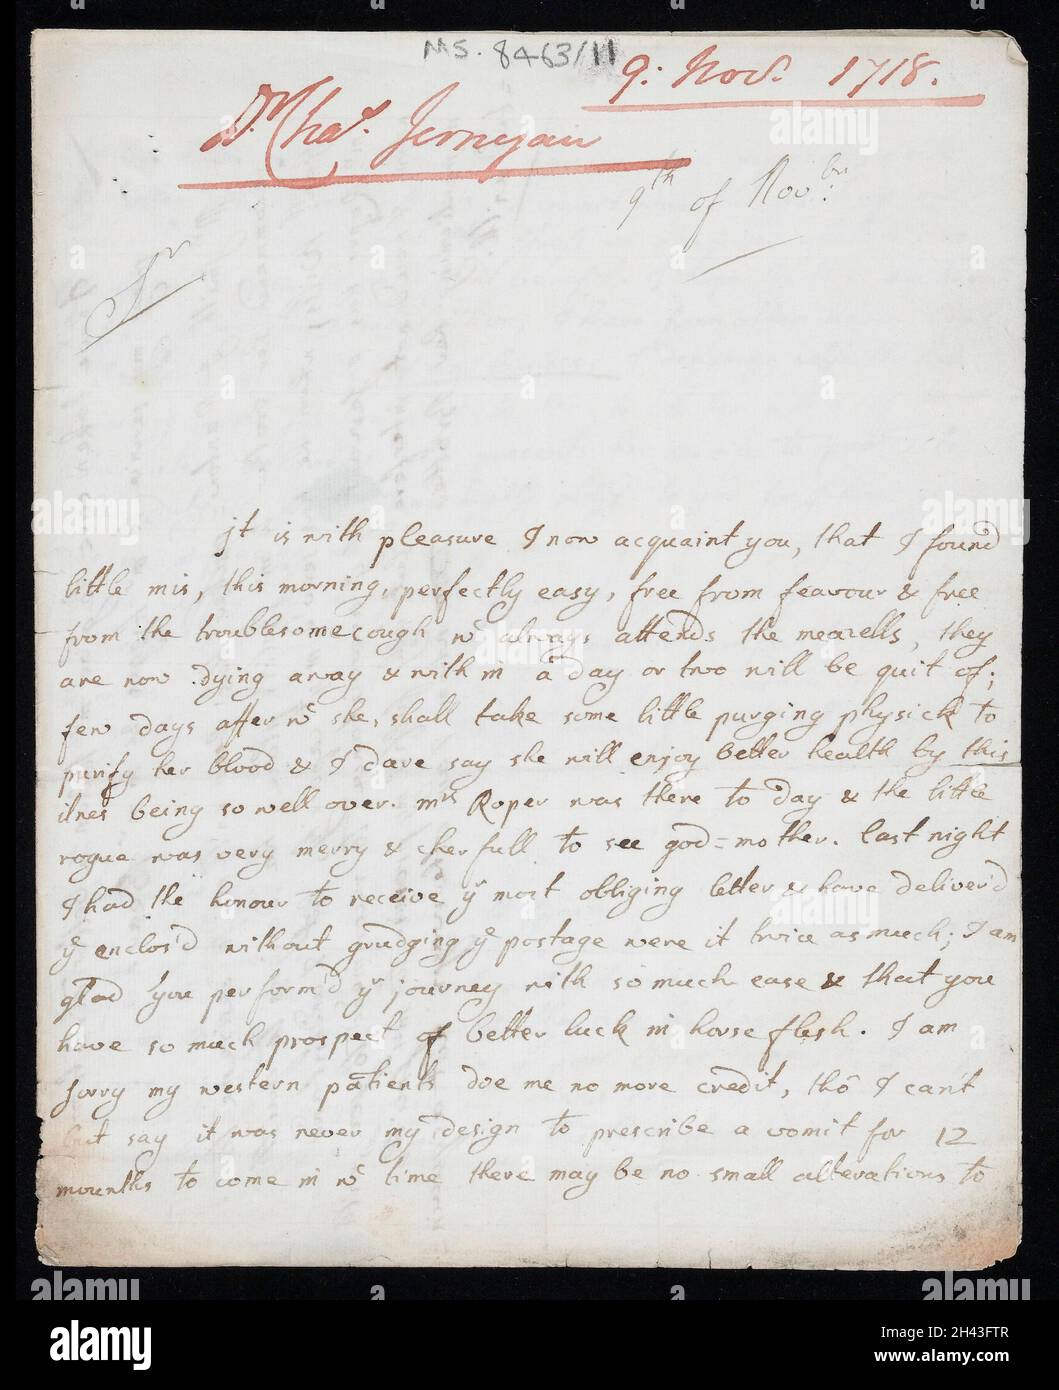 MS. 8463/11
9: Novr. 1718.
Dr. Chas. Jernegan
9th of Novbr:
Sr
jt is with pleasure I now acquaint you, that I found
little mis, this morning, perfectly easy, free from feavour & free
from the troublesome cough wc always attends the meazells, they
are now dying away & with in a day or two will be quit of;
few days after wc she, shall take some little purging physick to
purify her blood & I dare say she will enjoy better health by this
ilnes being so well over. mrs Roper was there to day & the little
rogue was very merry & cherfull to see god=mother. last night
I had the honour to receive yr most obliging letter & have deliver'd
ye enclos'd without grudging ye postage were it twice as much; I am
glad you perform'd yr journey with so much ease & that you
have so much prospect of better luck in horse flesh. I am
sorry my western patients doe me no more credit, tho I can't
but say it was never my design to prescribe a vomit for 12
mounths to come in wc time there may be no small alterations to
alamy
Image ID: 2H43FTR
www.alamy.com